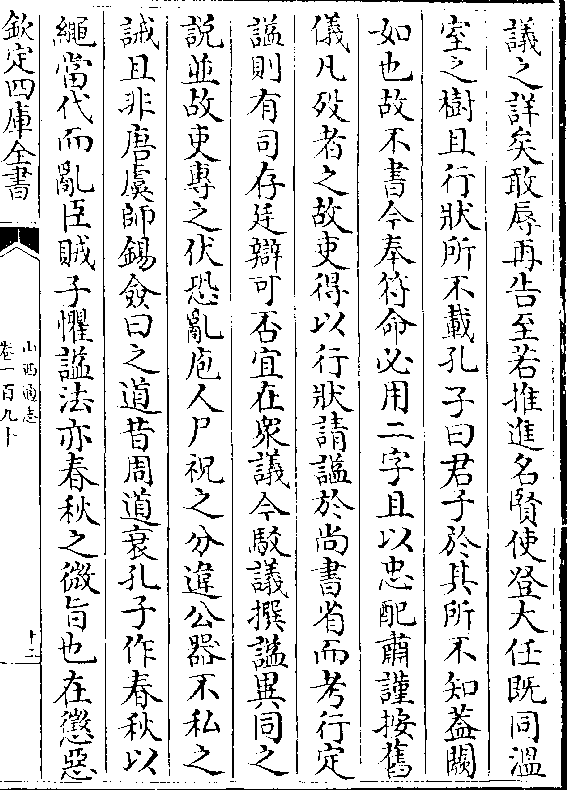 議之詳矣敢辱再告至若推進名賢使登大任既同溫
室之樹且行狀所不載孔子曰君子於其所不知蓋闕
如也故不書今奉符命必用二字且以忠配肅謹按舊
儀凡殁者之故吏得以行狀請諡於尚書省而考行定
諡則有司存廷辯可否宜在衆議今駮議撰諡異同之
説並故吏專之伏恐亂庖人尸祝之分違公器不私之
誡且非唐虞師錫僉曰之道昔周道衰孔子作春秋以
繩當代而亂臣賊子懼諡法亦春秋之微旨也在懲惡
欽定四庫全書
山西通志
卷一百九十
十三